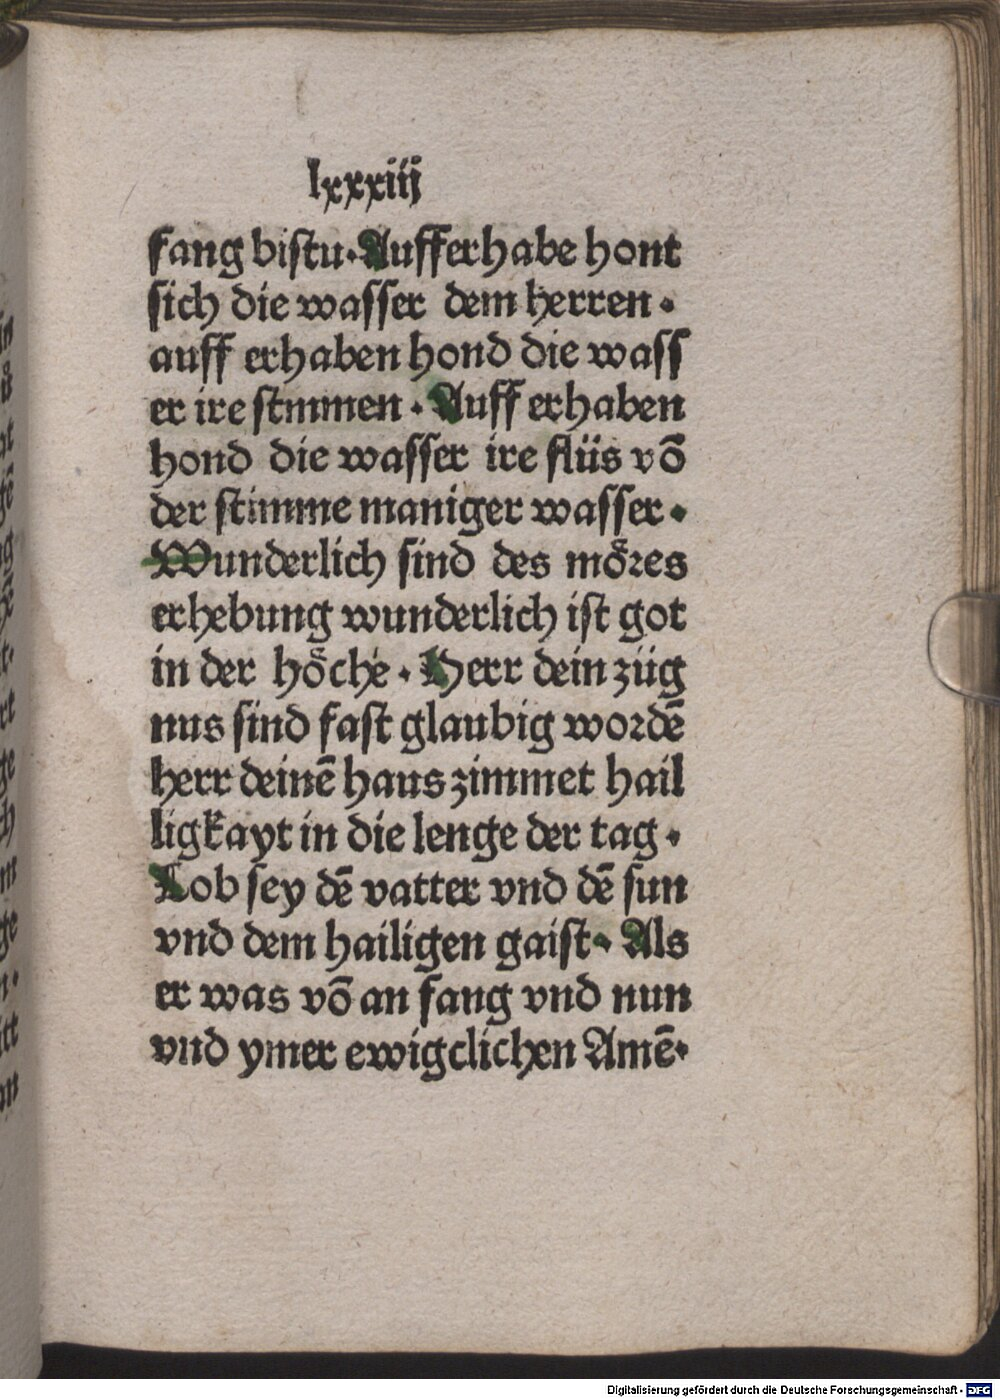 lxxxiij
fang bistu. Aufferhabe hont
sich die wasser dem herren.
auff erhaben hond die wass
er ire stmmen. Auff erhaben
hond die wasser ire flüs võ
der stimme maniger wasser.
Wunderlich sind des moͤres
erhebung wunderlich ist got
in der hoͤche. Herr dein züg
nus sind fast glaubig wordẽ
herr deinẽ haus zimmet hail
ligkayt in die lenge der tag.
Lob sey dẽ vatter vnd dẽ sun
vnd dem hailigen gaist. Als
er was võ an fang vnd nun
vnd ymer ewigclichen Amẽ.
Digitalisierung gefördert durch die Deutsche Forschungsgemeinschaft - DFG